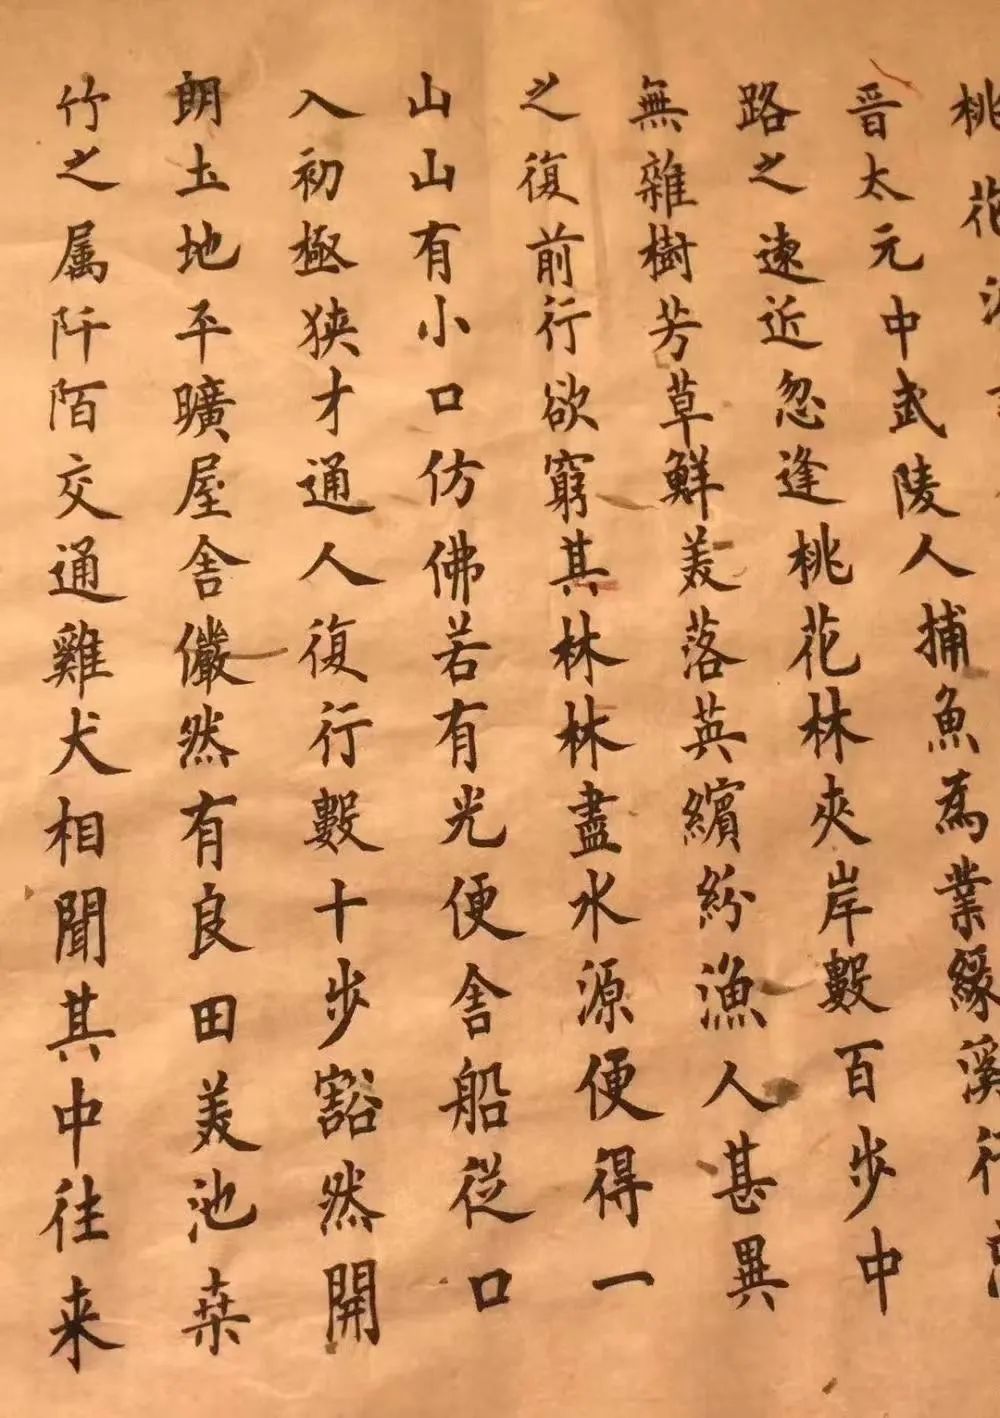 桃花
晋太元中武陵人捕魚為業緣溪行
路之遠近忽逢桃花林夾岸數百步中
無雜樹芳草鮮美落英繽紛漁人甚異
之復前行欲窮其林林盡水源便得一
山山有小口仿佛若有光便舍船從口
入初極狭才通人復行數十步豁然開
朗土地平曠屋舍儼然有良田美池桒
竹之属阡陌交通雞犬相聞其中往来